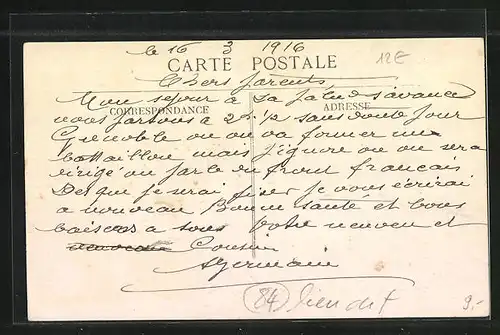 le 16 3 1916
12E
CARTE POSTALE
Chers parents
Mon sejour à La Palud s'avance
CORRESPONDANCE
ADRESSE
nous partons à 2h 1/2 sans doute pour
Grenoble ou on va former un
battaillon mais j'ignore ou on sera
dirigé on parle du front français
Des que je serai fixer je vous écrirai
a nouveau Bonne santé et bons
baisers a tous votre neveu et
Cousin
Germain
84
9.-